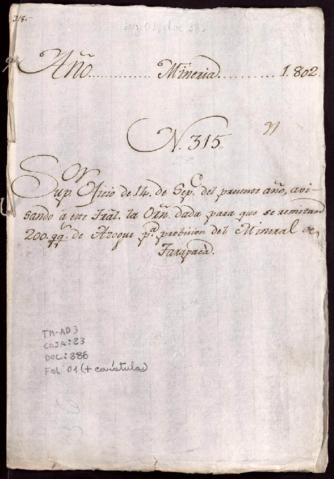 315.
Año............ Mineria............ 1.802.
N. 315.
Sup.or Oficio de 14. de Sep.e del presente año, avi-
sando á este Tral. la Orn. dada para que se remitan
200. qq.s de Azogue p.a probicion del Mineral de
Tarapacá.
TM-AD3
CAJA: 23
DOC: 886
FOL 01 (+ carátula)